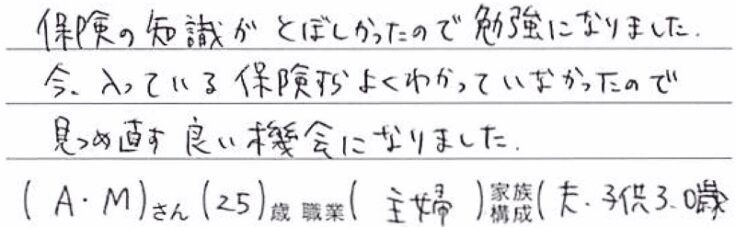 保険の知識がとぼしかったので勉強になりました.
今、入っている保険すらよくわかっていなかったので
見つめ直す良い機会になりました.
(A・M)さん(25)歳 職業(主婦)家族構成(夫・子供3.0歳